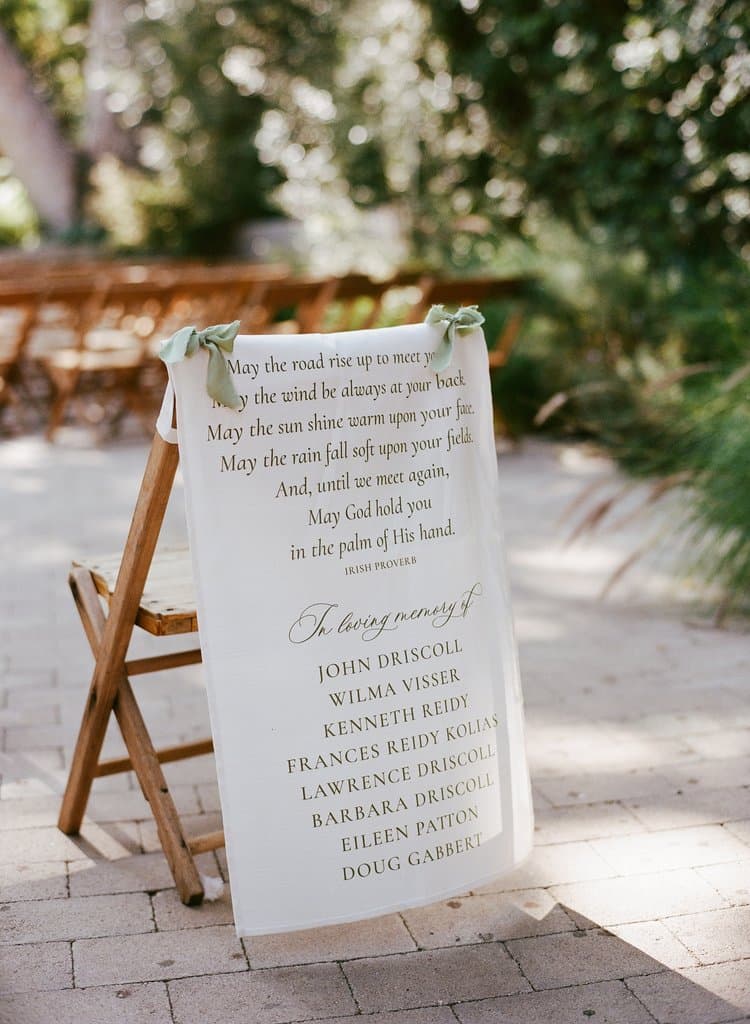 May the road rise up to meet
May the wind be always at your back
May the sun shine warm upon your face,
May the rain fall soft upon your fields.
And, until we meet again,
May God hold you
in the palm of His hand.
IRISH PROVERB
In loving memory of
JOHN DRISCOLL
WILMA VISSER
KENNETH REIDY
FRANCES REIDY KOLIAS
LAWRENCE DRISCOLL
BARBARA DRISCOLL
EILEEN PATTON
DOUG GABBERT